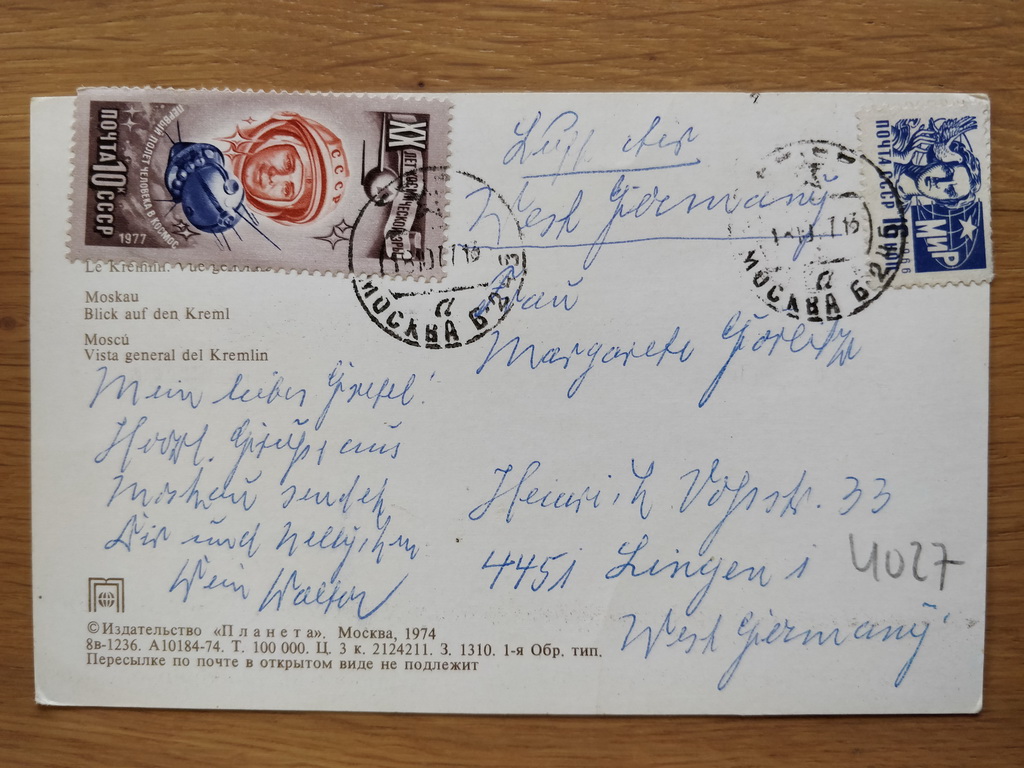 XX ЛЕТ КОСМИЧЕСКОЙ ЭРЫ
ПЕРВЫЙ ПОЛЕТ ЧЕЛОВЕКА В КОСМОС
СССР
ПОЧТА 10К СССР
1977
ПОЧТА СССР 16
МИР
1966
МОСКВА Б-245
а
МОСКВА Б-245
а
Le Kremlin. Vue générale
Moskau
Blick auf den Kreml
Moscú
Vista general del Kremlin
Mein lieber Gretel!
Herzl. Grüße aus
Moskau sendet
Dir und
Dein Walter
©Издательство «Планета». Москва, 1974
8в-1236. А10184-74. Т. 100 000. Ц. 3 к. 2124211. З. 1310. 1-я Обр. тип.
Пересылке по почте в открытом виде не подлежит
West Germany
Frau
Margarete Görlitz
Heinrich Voßstr. 33
445i Lingen i
West Germany
4027